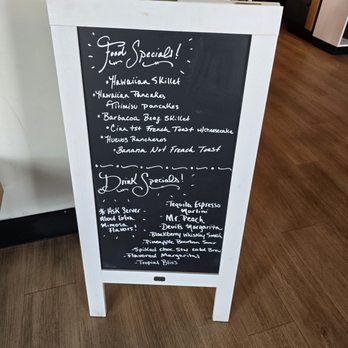 Food Specials!
• Hawaiian Skillet
• Hawaiian Pancakes
Tiramisu pancakes
• Barbacoa Beef Skillet
• Cinn tst French Toast w/cheesecake
• Huevos Rancheros
• Banana Nut French Toast
Drink Specials!
* Ask Server
About Extra
Mimosa
Flavors!
- Tequila Espresso
Martini
- Mr. Peach
- Devil's Margarita
- Blackberry Whiskey Smash
- Pineapple Bourbon Sour
- Spiked choc. Stw cake Brew
- Flavored Margaritas
- Tropical Bliss